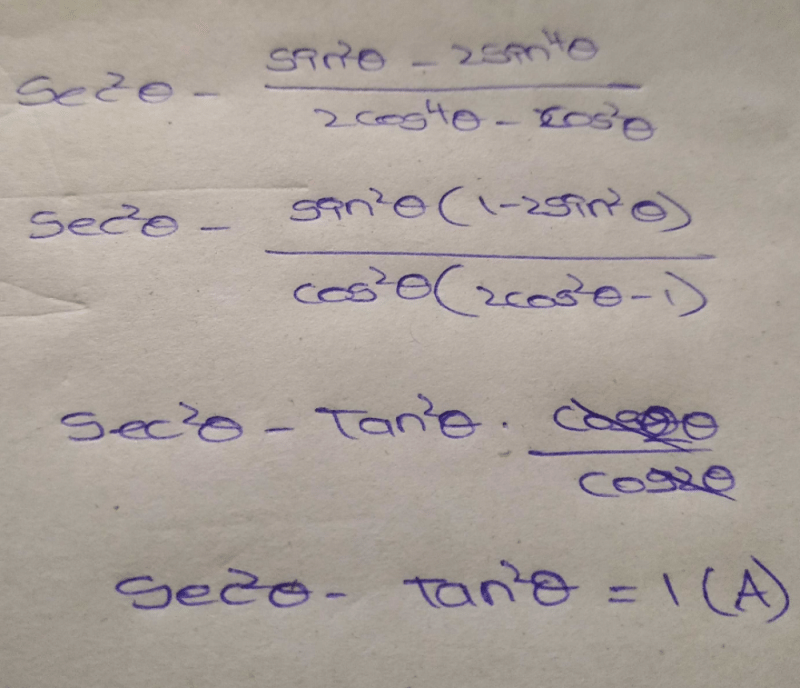 sec²θ - (sin²θ - 2sin⁴θ)/(2cos⁴θ - cos²θ)
sec²θ - (sin²θ(1-2sin²θ))/(cos²θ(2cos²θ-1))
sec²θ - Tan²θ . cos2θ/cos2θ
sec²θ - tan²θ = 1 (A)